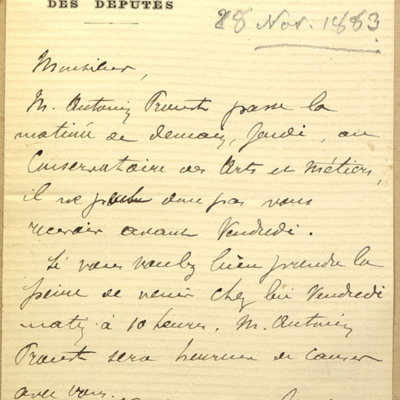 DES DÉPUTÉS
28 Nov. 1883
Monsieur,
M. Antonin Proust passe la
matinée de demain, Jeudi, au
Conservatoire des Arts et Métiers,
il ne peut donc pas vous
recevoir avant Vendredi.
Si vous voulez bien prendre la
peine de venir chez lui Vendredi
matin à 10 heures, M. Antonin
Proust sera heureux de causer
avec vous.